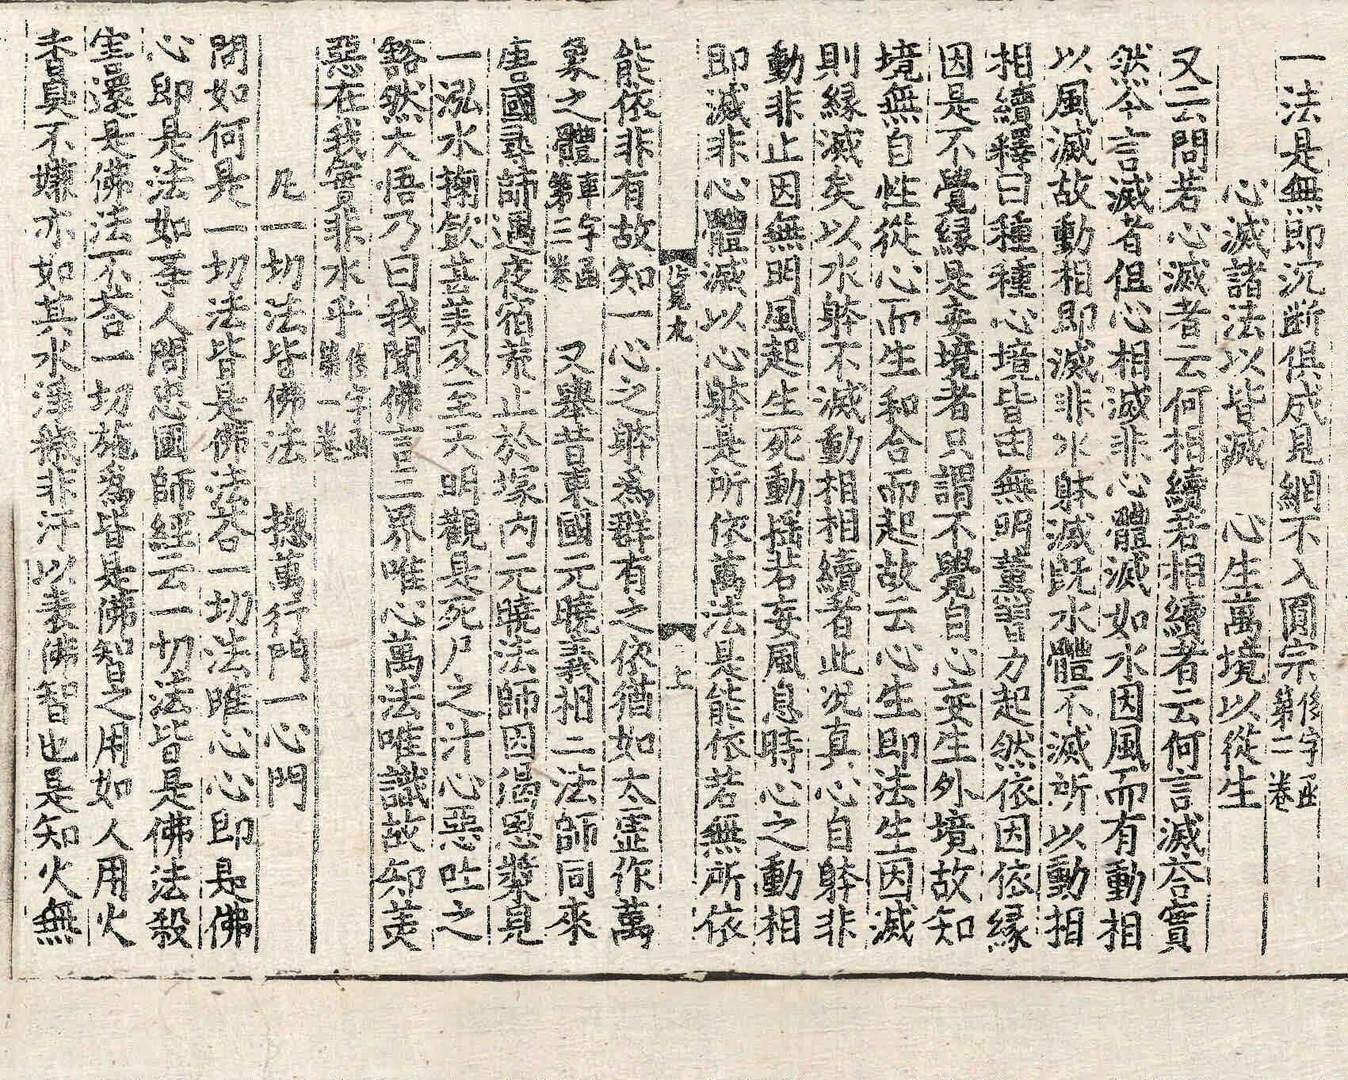 一法是無即沉斷俱成見網不入圓宗後字函第二卷
心滅諸法以皆滅 心生萬境以從生
又云問若心滅者云何相續若相續者云何言滅答實
然今言滅者但心相滅非心體滅如水因風而有動相
以風滅故動相即滅非水躰滅旣水體不滅所以動相
相續釋曰種種心境皆由無明熏習力起然依因依緣
因是不覺緣是妄境者只謂不覺自心妄生外境故知
境無自性從心而生和合而起故云心生即法生因滅
則緣滅矣以水躰不滅動相相續者此况真心自躰非
動非止因無明風起生死動揺若妄風息時心之動相
即滅非心體滅以心躰是所依萬法是能依若無所依
上
能依非有故知一心之躰為群有之依猶如太虛作萬
象之體車字函第三卷 又舉昔東國元曉義相二法師同來
唐國尋師遇夜宿荒止於塚內元曉法師因渴思漿見
一泓水掬飲甚美及至天明觀是死尸之汁心惡吐之
豁然大悟乃曰我聞佛言三界唯心萬法唯識故知美
惡在我實非水乎後字函第一卷
凡一切法皆佛法 揔萬行門一心門
問如何是一切法皆是佛法答一切法唯心心即是佛
心即是法如學人問忠國師經云一切法皆是佛法殺
害還是佛法不答一切施為皆是佛智之用如人用火
香臭不嫌亦如其水淨穢非汙以表佛智也是知火無